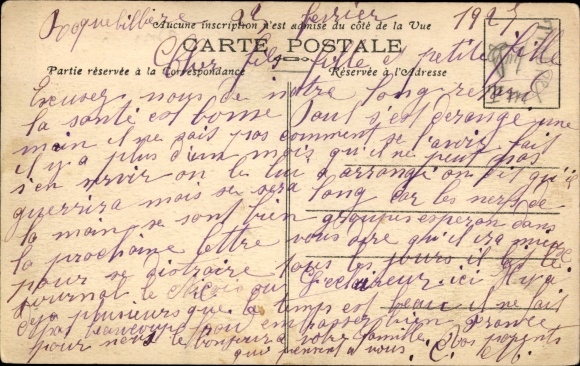 Roquebillière 22 février 1925
Aucune inscription n'est admise du côté de la Vue
CARTE POSTALE
Cher fils fille et petite fille
Partie réservée à la Correspondance
Réservée à l'Adresse
Excusez nous de notre long
la santé est bonne Paul s'est dérangé une
main il ne sait pas comment se l'avoir fait
il y a plus d'un mois qu'il ne peut pas
s'en servir on la lui a arrangé on dit qu'il
guerrira mais se sera long car les nerfs de
la main se sont bien esperon dans
la prochaine lettre vous dire qu'il ira mieux
pour se distraire tous les jours il a le
journal le ou l'éclaireur ici il y a
deja plusieurs que le temps est beau il ne fait
pas beaucoup bien France
pour nous le bonjour a votre famille. Vos parents
qui pensent a vous. C. M.